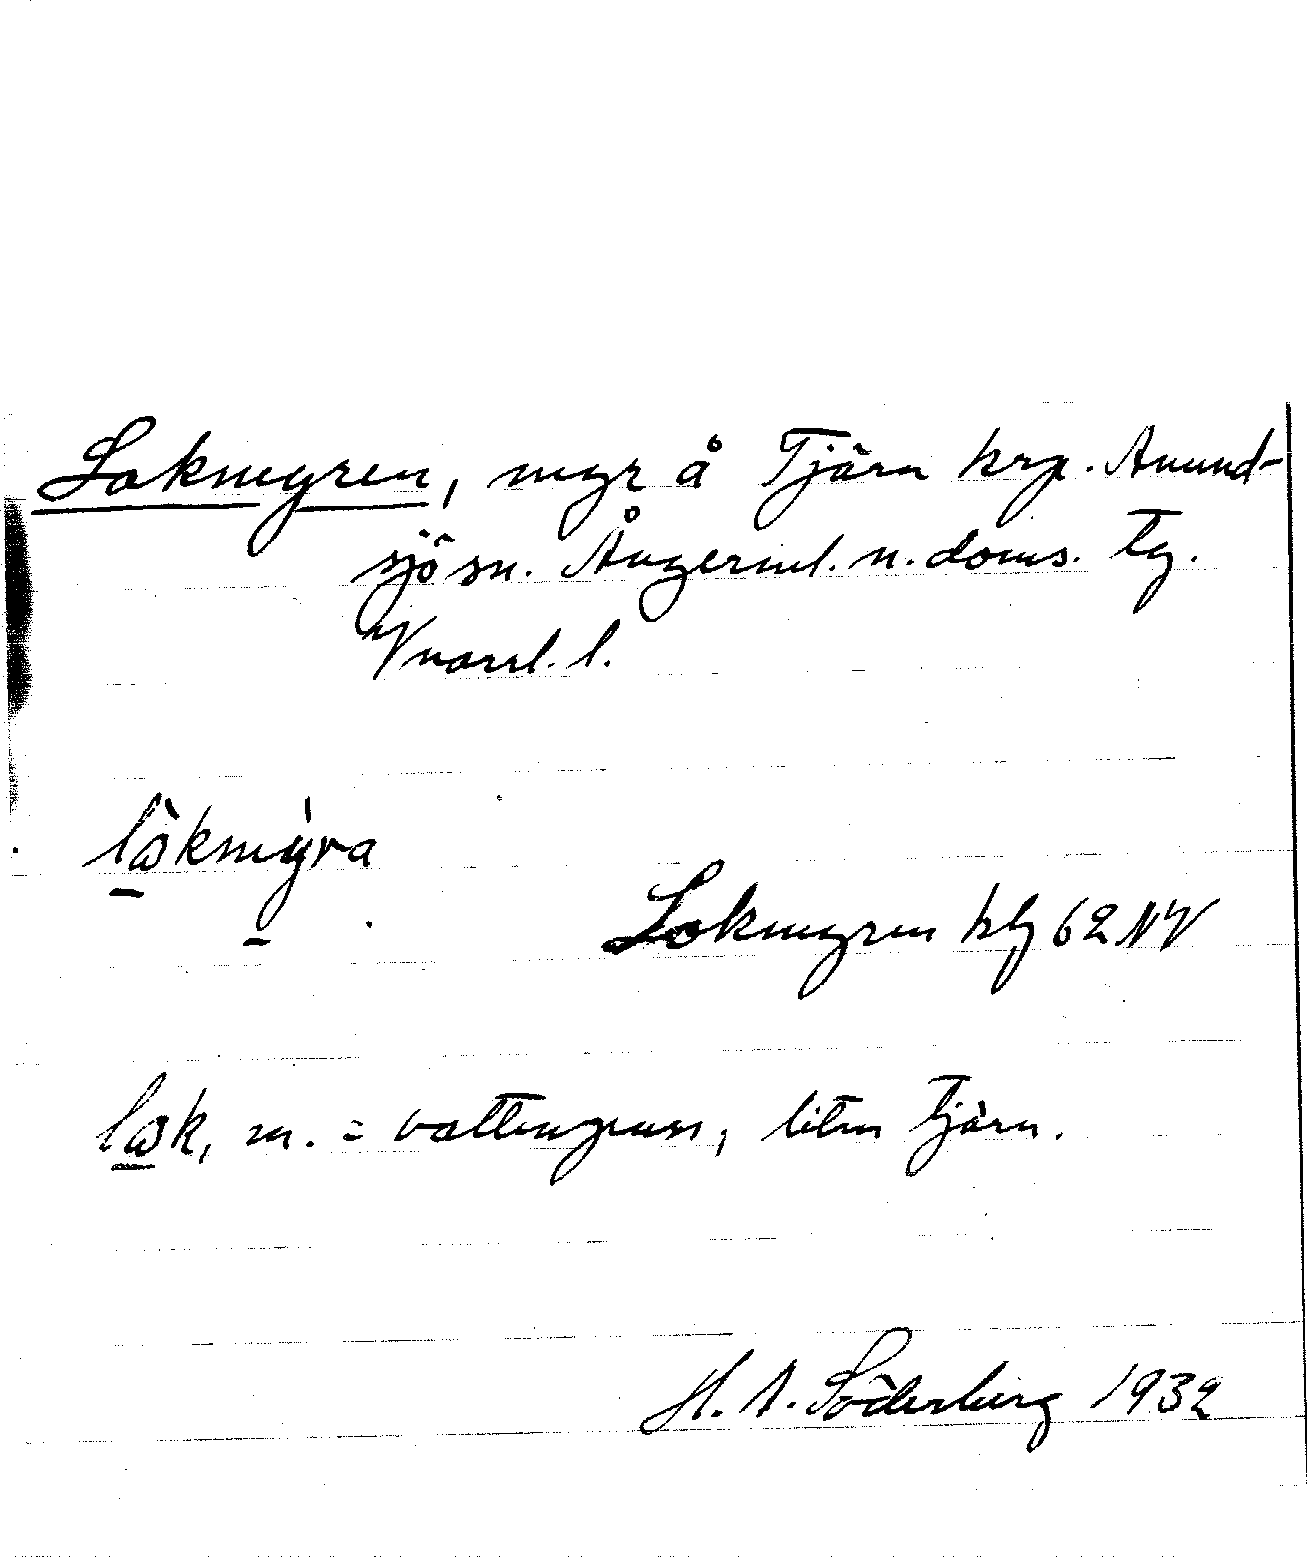 Lokmyren, myr å Tjärn krg. Anund-
sjö sn. Ångerml. n. doms. tg.
Vnorrl. l.
lòkmýra
Lokmyren hlg 62 NV
lok, m. = vattengrav, liten tjärn.
H. A. Söderberg 1932